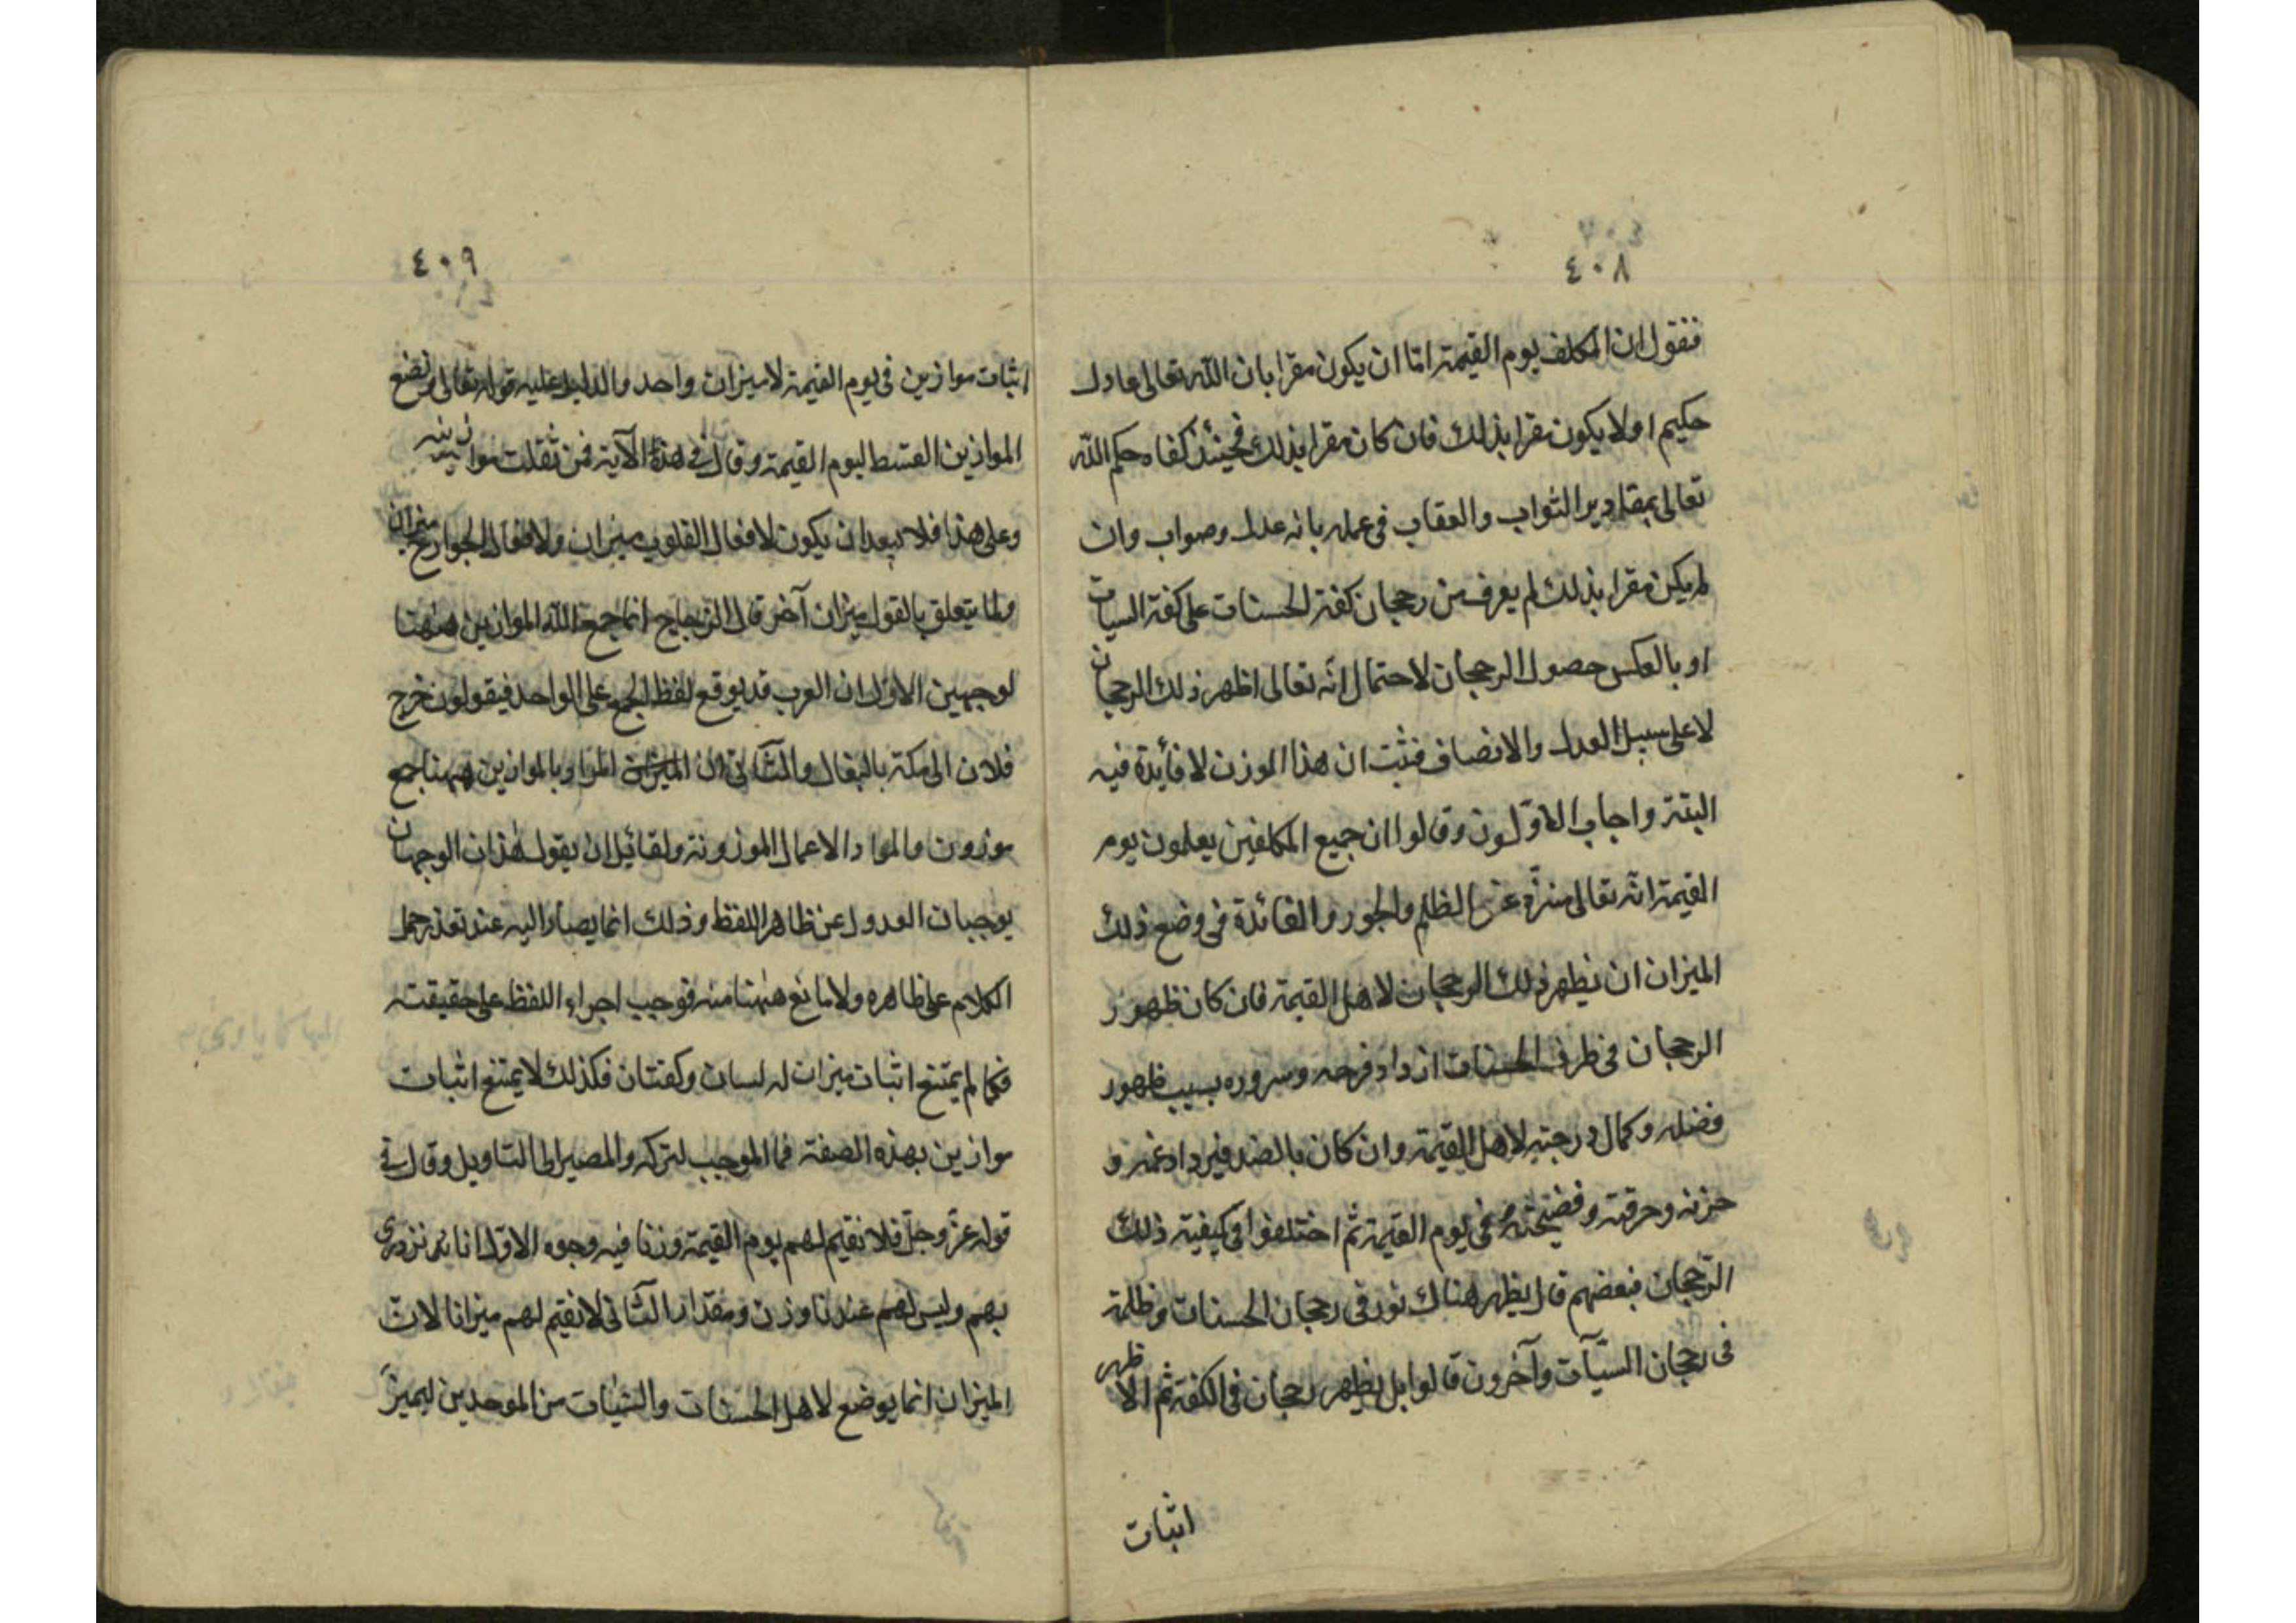 ٤٠٨
فنقول ان المكلف يوم القيمة اما ان يكون مقرا بان الله تعالى عادل
حكيم او لا يكون مقرا بذلك فان كان مقرا بذلك فحينئذ كفاه حكم الله
تعالى بمقادير الثواب والعقاب فى عمله بانه عدل وصواب وان
لم يكن مقرا بذلك لم يعرف من رجحان كفة الحسنات على كفة السيات
او بالعكس حصول الرجحان لاحتمال انه تعالى اظهر ذلك الرجحان
لا على سبيل العدل والانصاف فثبت ان هذا الموزن لا فأيدة فيه
البتة واجاب الاوّلون وقالوا ان جميع المكلفين يعلمون يوم
القيمة انه تعالى منزّه عن الظلم والجور والفائدة فى وضع ذلك
الميزان ان يظهر ذلك الرجحان لاهل القيمة فان كان ظهور
الرجحان فى طرف الحسنات ازداد فرحه وسروره بسبب ظهور
فضله وكمال درجته لاهل القيمة وان كان بالضد فيزداد غمه و
حزنه وحرقته وفضيحته فى يوم القيمة ثم اختلفوا فى كيفية ذلك
الرّجحان فبعضهم قال يظهر هناك نور فى رجحان الحسنات وظلمة
فى رجحان السيّآت وآخرون قالوا بل يظهر رجحان فى الكفة ثم الاظهر
اثبات
٤٠٩
اثبات موازين فى يوم القيمة لا ميزان واحد والدليل عليه قوله تعالى ونضع
الموازين القسط ليوم القيمة وقال فى هذه الآية فمن ثقلت موازينه
وعلى هذا فلا يبعد ان يكون لافعال القلوب ميزان ولافعال الجوارح ميزان
ولما يتعلق بالقول ميزان آخر قال الزجاج انما جمع الله الموازين ههنا
لوجهين الاوّل ان العرب قد يوقع لفظ الجمع على الواحد فيقولون خرج
فلان الى مكة بالبغال والثّانى ان المراد بالموازين ههنا جمع
موزون والمواد الاعمال الموزونة ولقائيل ان يقول هذان الوجهان
يوجبان العدول عن ظاهر اللفظ وذلك انما يصار اليه عند تعذر حمل
الكلام على ظاهره ولا مانع ههنا منه فوجب اجراء اللفظ على حقيقته
فكما لم يمتنع اثبات ميزان له لسان وكفتان فكذلك لا يمتنع اثبات
موازين بهذه الصفة فما الموجب لتركه والمصير الى التاويل وقال فى
قوله عزّ وجلّ فلا نقيم لهم يوم القيمة وزنا فيه وجوه الاوّل انا نزدرى
بهم وليس لهم عندنا وزن ومقدار الثّانى لا نقيم لهم ميزانا لان
الميزان انما يوضع لاهل الحسنات والسّيّات من الموحدين ليميز